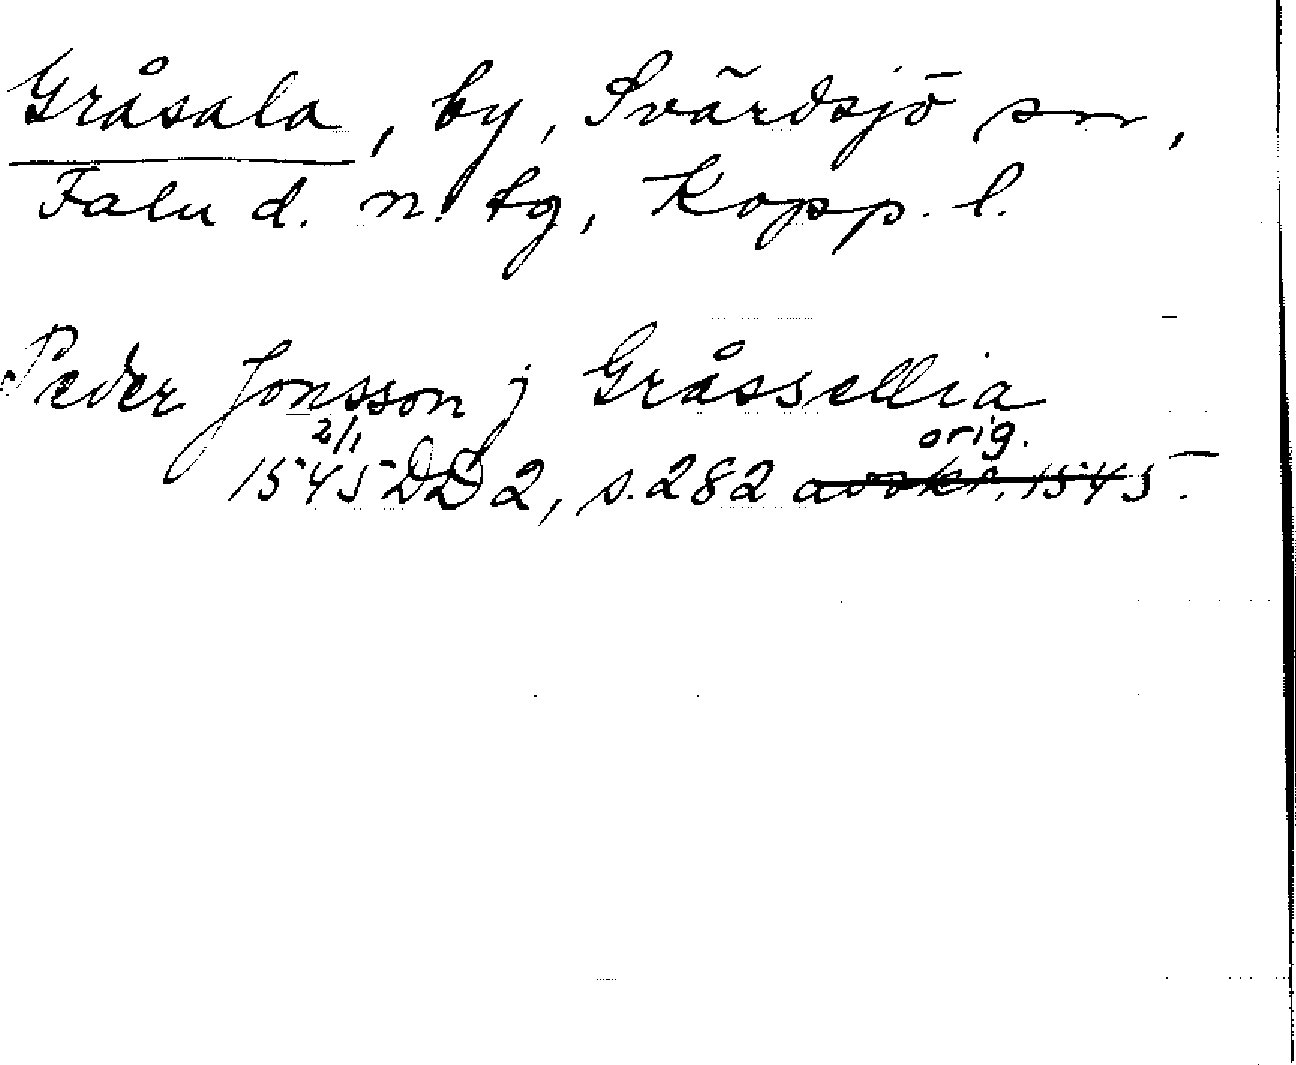 Gråsala, by, Svärdsjö sn,
Falu d. n. tg, Kopp. l.
Peder Jonsson j Gråssellia
2/1 orig.
1545 DD 2, s. 282 avskr. 1545.